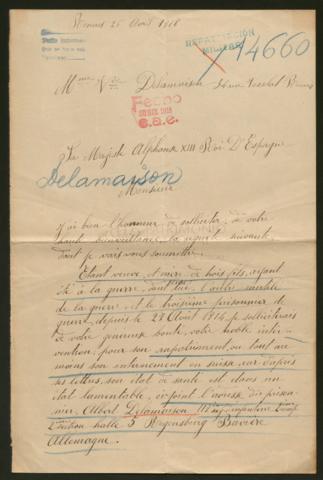 Rennes 26 Avril 1918
REPATRIACIÓN
MILITAR
14660
Mme Vve Delamaison
Fecho
C.a.e.
Sa Majesté Alphonse XIII Roi D'Espagne
Delamaison
Monsieur
J'ai bien l'honneur de solliciter, de votre
haute bienveillance la requête suivante
dont je vais vous soumettre.
Étant veuve, et mère de trois fils, ayant
été à la guerre, dont l'un l'autre mutilé
de la guerre, et le troisième prisonnier de
guerre, depuis le 28 Août 1914, je solliciterais
de votre généreuse bonté, votre noble inter-
vention, pour son rapatriement ou tout au
moins son internement en Suisse, car d'après
ses lettres, son état de santé est dans un
état lamentable, ci-joint l'adresse du prison-
nier, Albert Delamaison
Section halle 5 Regensburg Bavière
Allemagne.